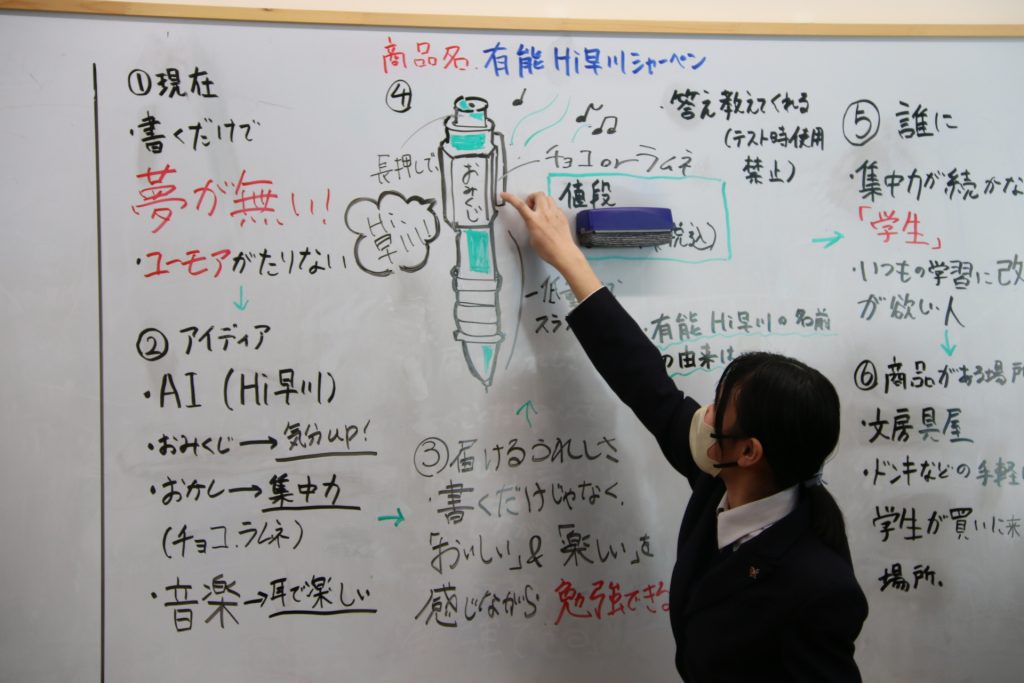 商品名.有能Hi早川シャーペン
①現在
・書くだけで
夢が無い!
・ユーモアがたりない
↓
②アイディア
・AI(Hi早川)
・おみくじ→気分up!
・おかし→集中力
(チョコ.ラムネ)
・音楽→耳で楽しい
→
③届けるうれしさ
・書くだけじゃなく、
「おいしい」&「楽しい」を
感じながら勉強できる
↑
④
長押しで
Hi早川!
おみくじ
チョコorラムネ
・答え教えてくれる
(テスト時使用
禁止)
値段
税込)
・有能Hi早川の名前
の由来は
→
⑤誰に
・集中力が続かな
「学生」
・いつもの学習に改
が欲しい人
↓
⑥商品がある場所
・文房具屋
・ドンキなどの手軽
学生が買いに来
場所.